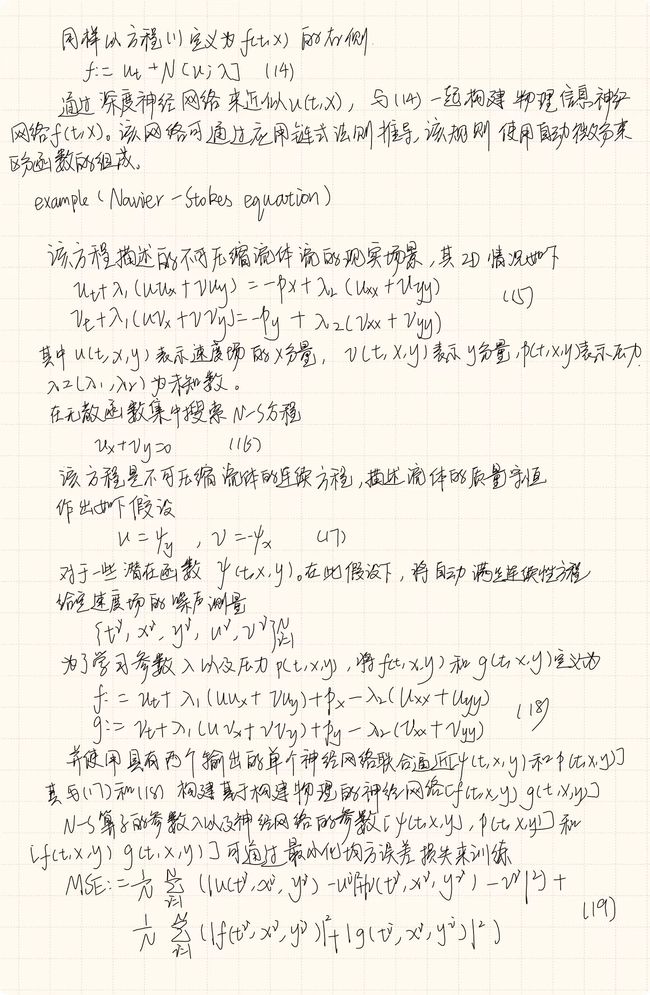 同样以方程(1)定义为f(t,x)的右侧.
f:= ut + N[u;λ] (14)
通过深度神经网络来近似u(t,x), 与(14)一起构建物理信息神经
网络f(t,x)。该网络可通过应用链式法则推导,该规则使用自动微分来
区分函数的组成。
example (Navier-Stokes equation)
该方程描述的不可压缩流体流的现实场景,其2D情况如下
ut+λ1(uux+vuy) = -px+λ2(uxx+uyy)
(15)
vt+λ1(uvx+vvy)=-py+λ2(vxx+vyy)
其中u(t,x,y)表示速度场的x分量, v(t,x,y)表示y分量,p(t,x,y)表示压力
λ2(λ1,λ2)为未知数。
在无散函数集中搜索N-S方程
ux+vy=0 (16)
该方程是不可压缩流体的连续方程,描述流体的质量守恒
作出如下假设
u=ψy , v=-ψx (17)
对于一些潜在函数ψ(t,x,y)。在此假设下,将自动满足连续性方程
给定速度场的噪声测量
{tⁱ, xⁱ, yⁱ, uⁱ, vⁱ}ᴺᵢ₌₁
为了学习参数λ以及压力p(t,x,y),将f(t,x,y)和g(t,x,y)定义为
f:= ut+λ1(uux+vuy)+px-λ2(uxx+uyy)
(18)
g:= vt+λ1(uvx+vvy)+py-λ2(vxx+vyy)
并使用具有两个输出的单个神经网络联合逼近[ψ(t,x,y)和p(t,x,y)]
其与(17)和(18)构建基于构建物理的神经网络[f(t,x,y) g(t,x,y)]
N-S算子的参数λ以及神经网络的参数[ψ(t,x,y), p(t,x,y)]和
[f(t,x,y) g(t,x,y)]可通过最小化均方误差损失来训练
MSE:= 1/N Σᴺᵢ₌₁ (|u(tⁱ,xⁱ,yⁱ)-uⁱ|²+|v(tⁱ,xⁱ,yⁱ)-vⁱ|²) +
(19)
1/N Σᴺᵢ₌₁ (|f(tⁱ,xⁱ,yⁱ)|²+|g(tⁱ,xⁱ,yⁱ)|²)